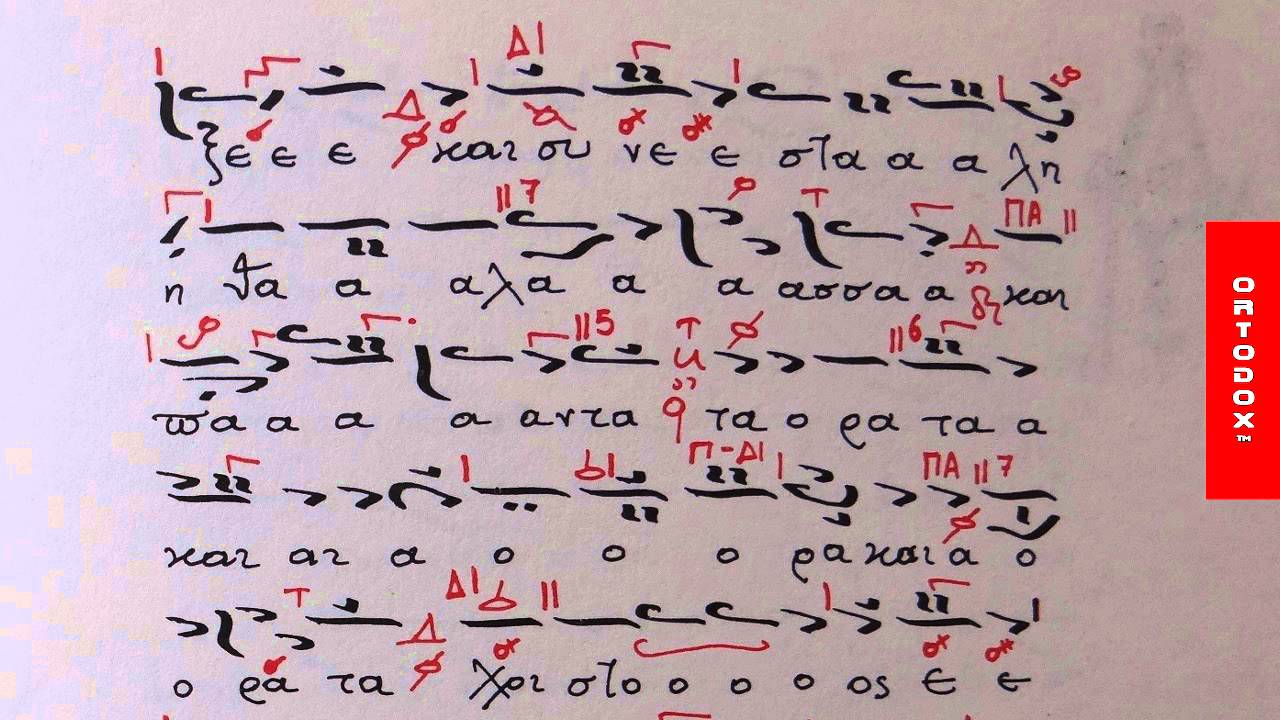 Δ
{ε ε ε και συ νε ε στα α α λη
Δ
η θα α αλα α α ασσα α και
ΠΑ
7
Δ
πα α α α αντα τα ο ρα τα α
5
6
και αι α ο ο ο ρα και α ο
Π-Δ
ΠΑ
7
ο ρα τα Χρι στο ο ο ο ος ε ε
Δ
Δ
ORTODOX™